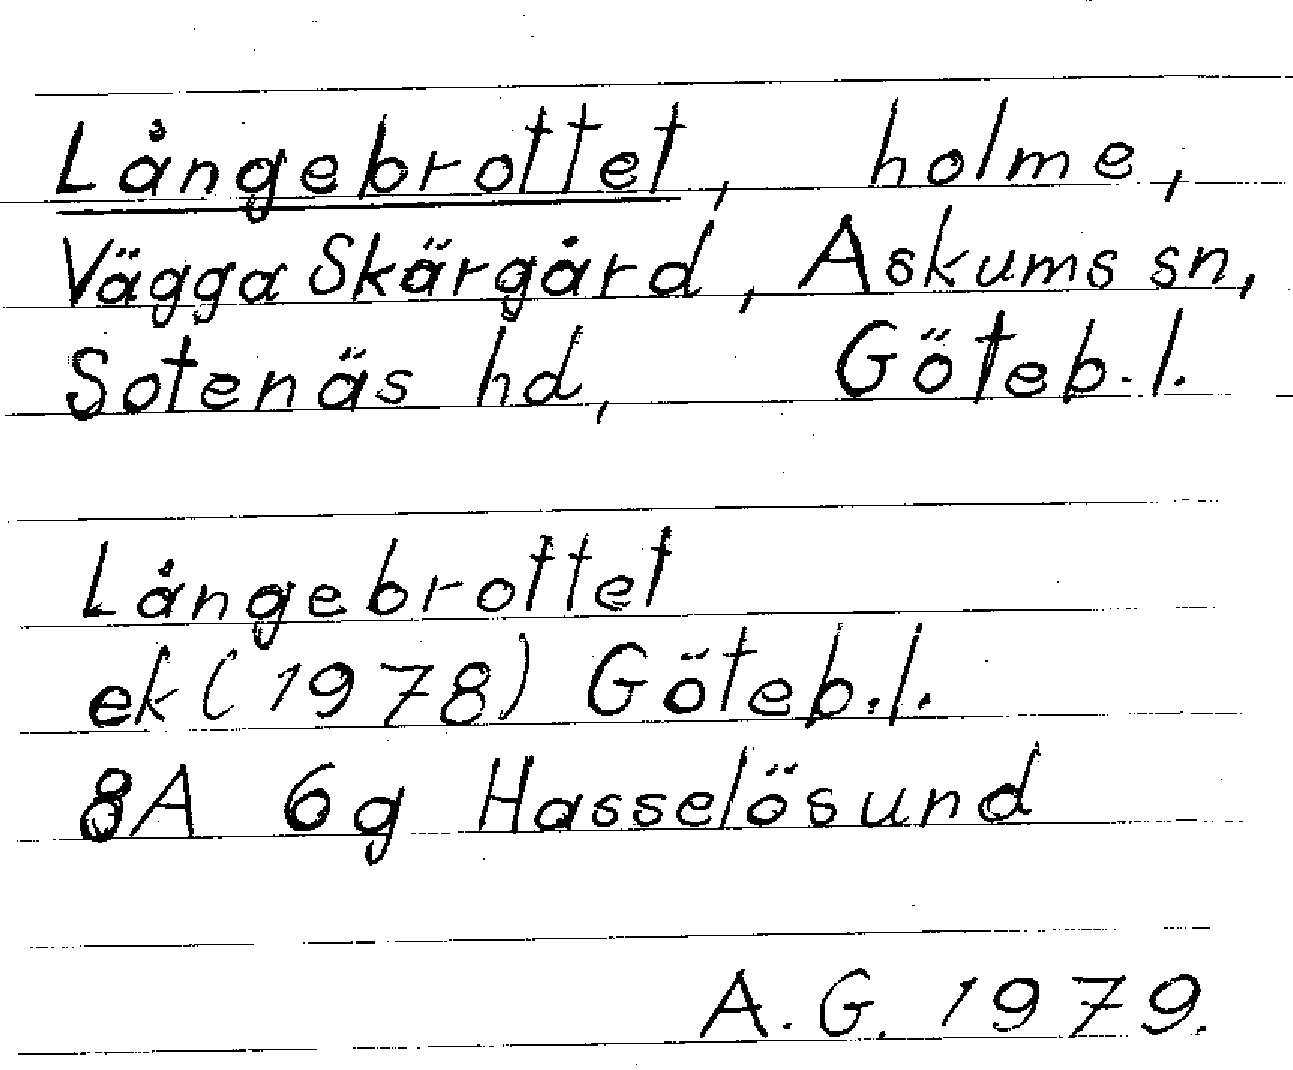 Långebrottet, holme,
Vägga Skärgård, Askums sn,
Sotenäs hd, Göteb.l.
Långebrottet
ek (1978) Göteb.l.
8A 6g Hasselösund
A.G. 1979.